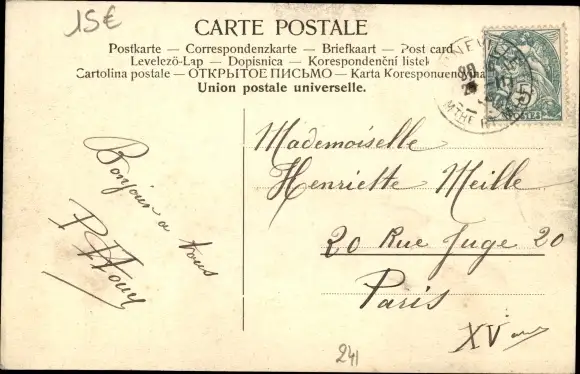 15€
CARTE POSTALE
Postkarte — Correspondenzkarte — Briefkaart — Post card
Levelező-Lap — Dopisnica — Korespondenční listek
Cartolina postale — ОТКРЫТОЕ ПИСЬМО — Karta Korespondencyjna
Union postale universelle.
Bonjour a tous
Mademoiselle
Henriette Meille
20 Rue Juge 20
Paris
XV
241